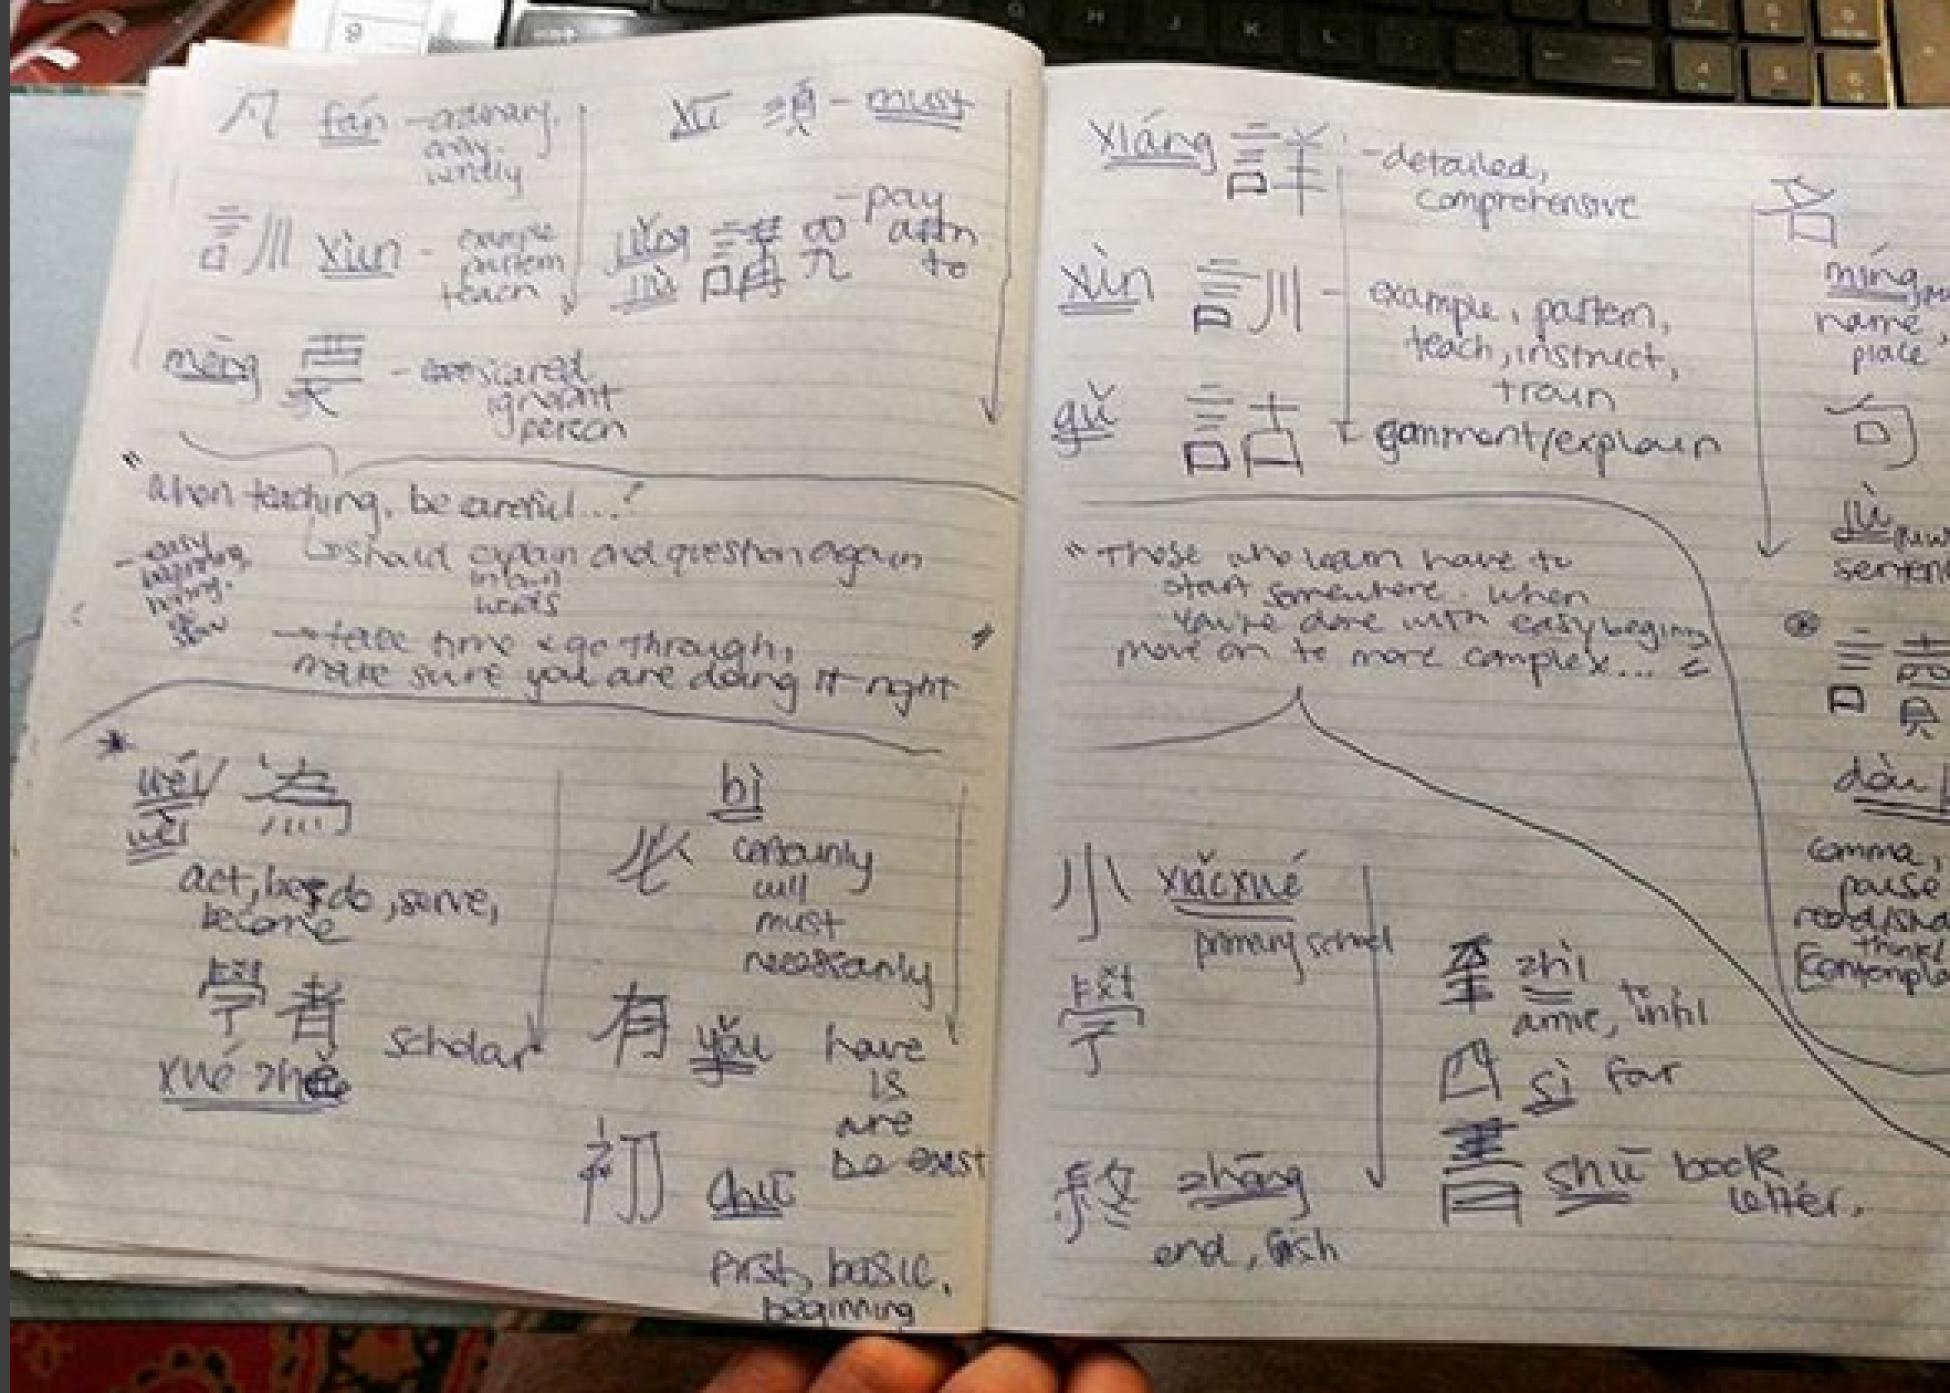 凡 fán - ordinary,
any.
訓 xùn - example
pattern
teach
méng 蒙 -
ignorant
person
xū 須 - must
講究 - pay
attn
to
"when teaching, be careful...!
↳ should explain and question again
in own
words
- easy
→ take time & go through,
make sure you are doing it right "
*
wéi/ 為
wèi
act, be, do, serve,
become
學者 scholar
xué zhě
bì
必 certainly
will
must
necessarily
有 yǒu have
is
are
be exist
初 chū
first, basic,
beginning
xiáng 詳 - detailed,
comprehensive
xùn 訓 - example, pattern,
teach, instruct,
train
gǔ 詁 comment/explain
" Those who learn have to
start somewhere. when
you're done with easy beginning
move on to more complex...
小 xiǎoxué
primary school
學
終 zhāng
end,
至 zhì
until
四 sì four
書 shū book
letter.
名
míng
name,
place
句
jù
讀
dòu
comma,
pause
think/